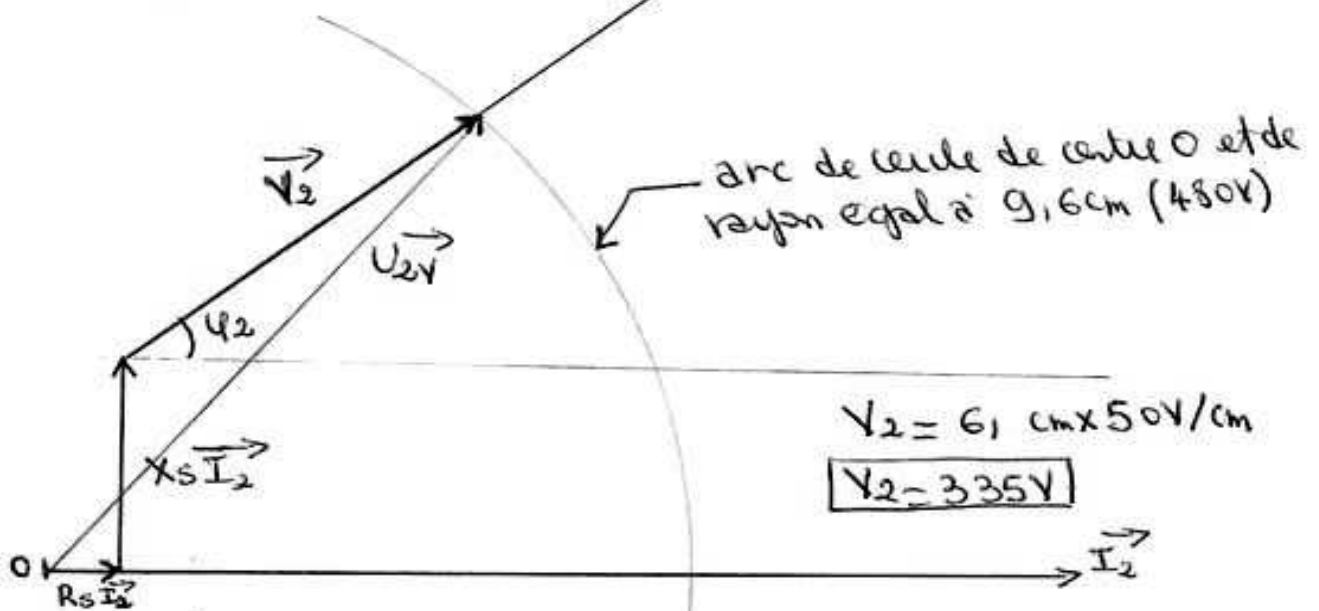 V2
arc de cercle de centre O et de
rayon egal à 9,6cm (480V)
U2V
φ2
V2 = 6, cmx50V/cm
XsI2
V2=335V
O
I2
RsI2